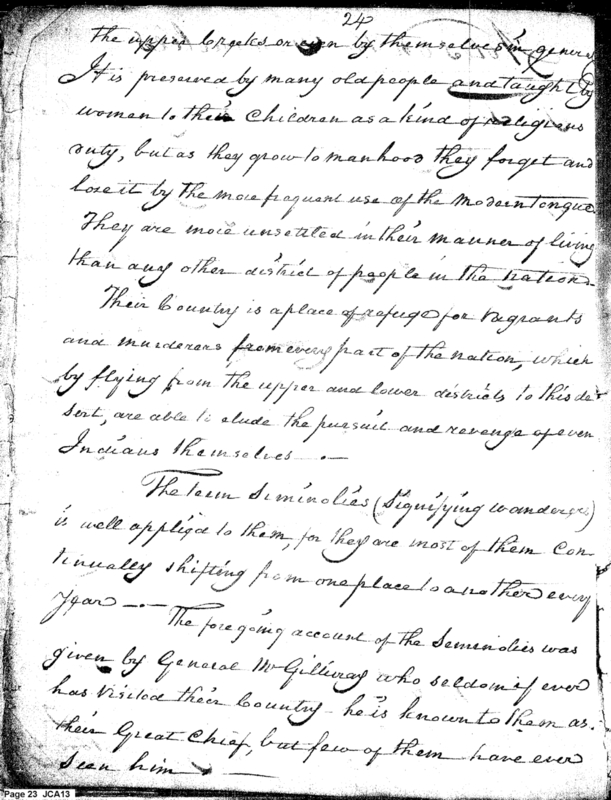 24
the upper Creeks or even by themselves in general
It is preserved by many old people and taught by
women to their Children as a kind of religious
duty, but as they grow to manhood they forget and
lose it by the more frequent use of the Modern tongue.
They are more unsettled in their manner of living
than any other district of people in the nation.
Their Country is a place of refuge for vagrants
and murderers from every part of the nation, which
by flying from the upper and lower districts to this de-
sert, are able to elude the pursuit and revenge of even
Indians themselves —
The term Seminolies (Signifying wanderers)
is well applied to them, for they are most of them Con-
tinually shifting from one place to another every
Year — The foregoing account of the Seminolies was
given by General McGillivray who seldom if ever
has visited their Country he is known to them as
their Great Chief, but few of them have ever
seen him —
Page 23 JCA13